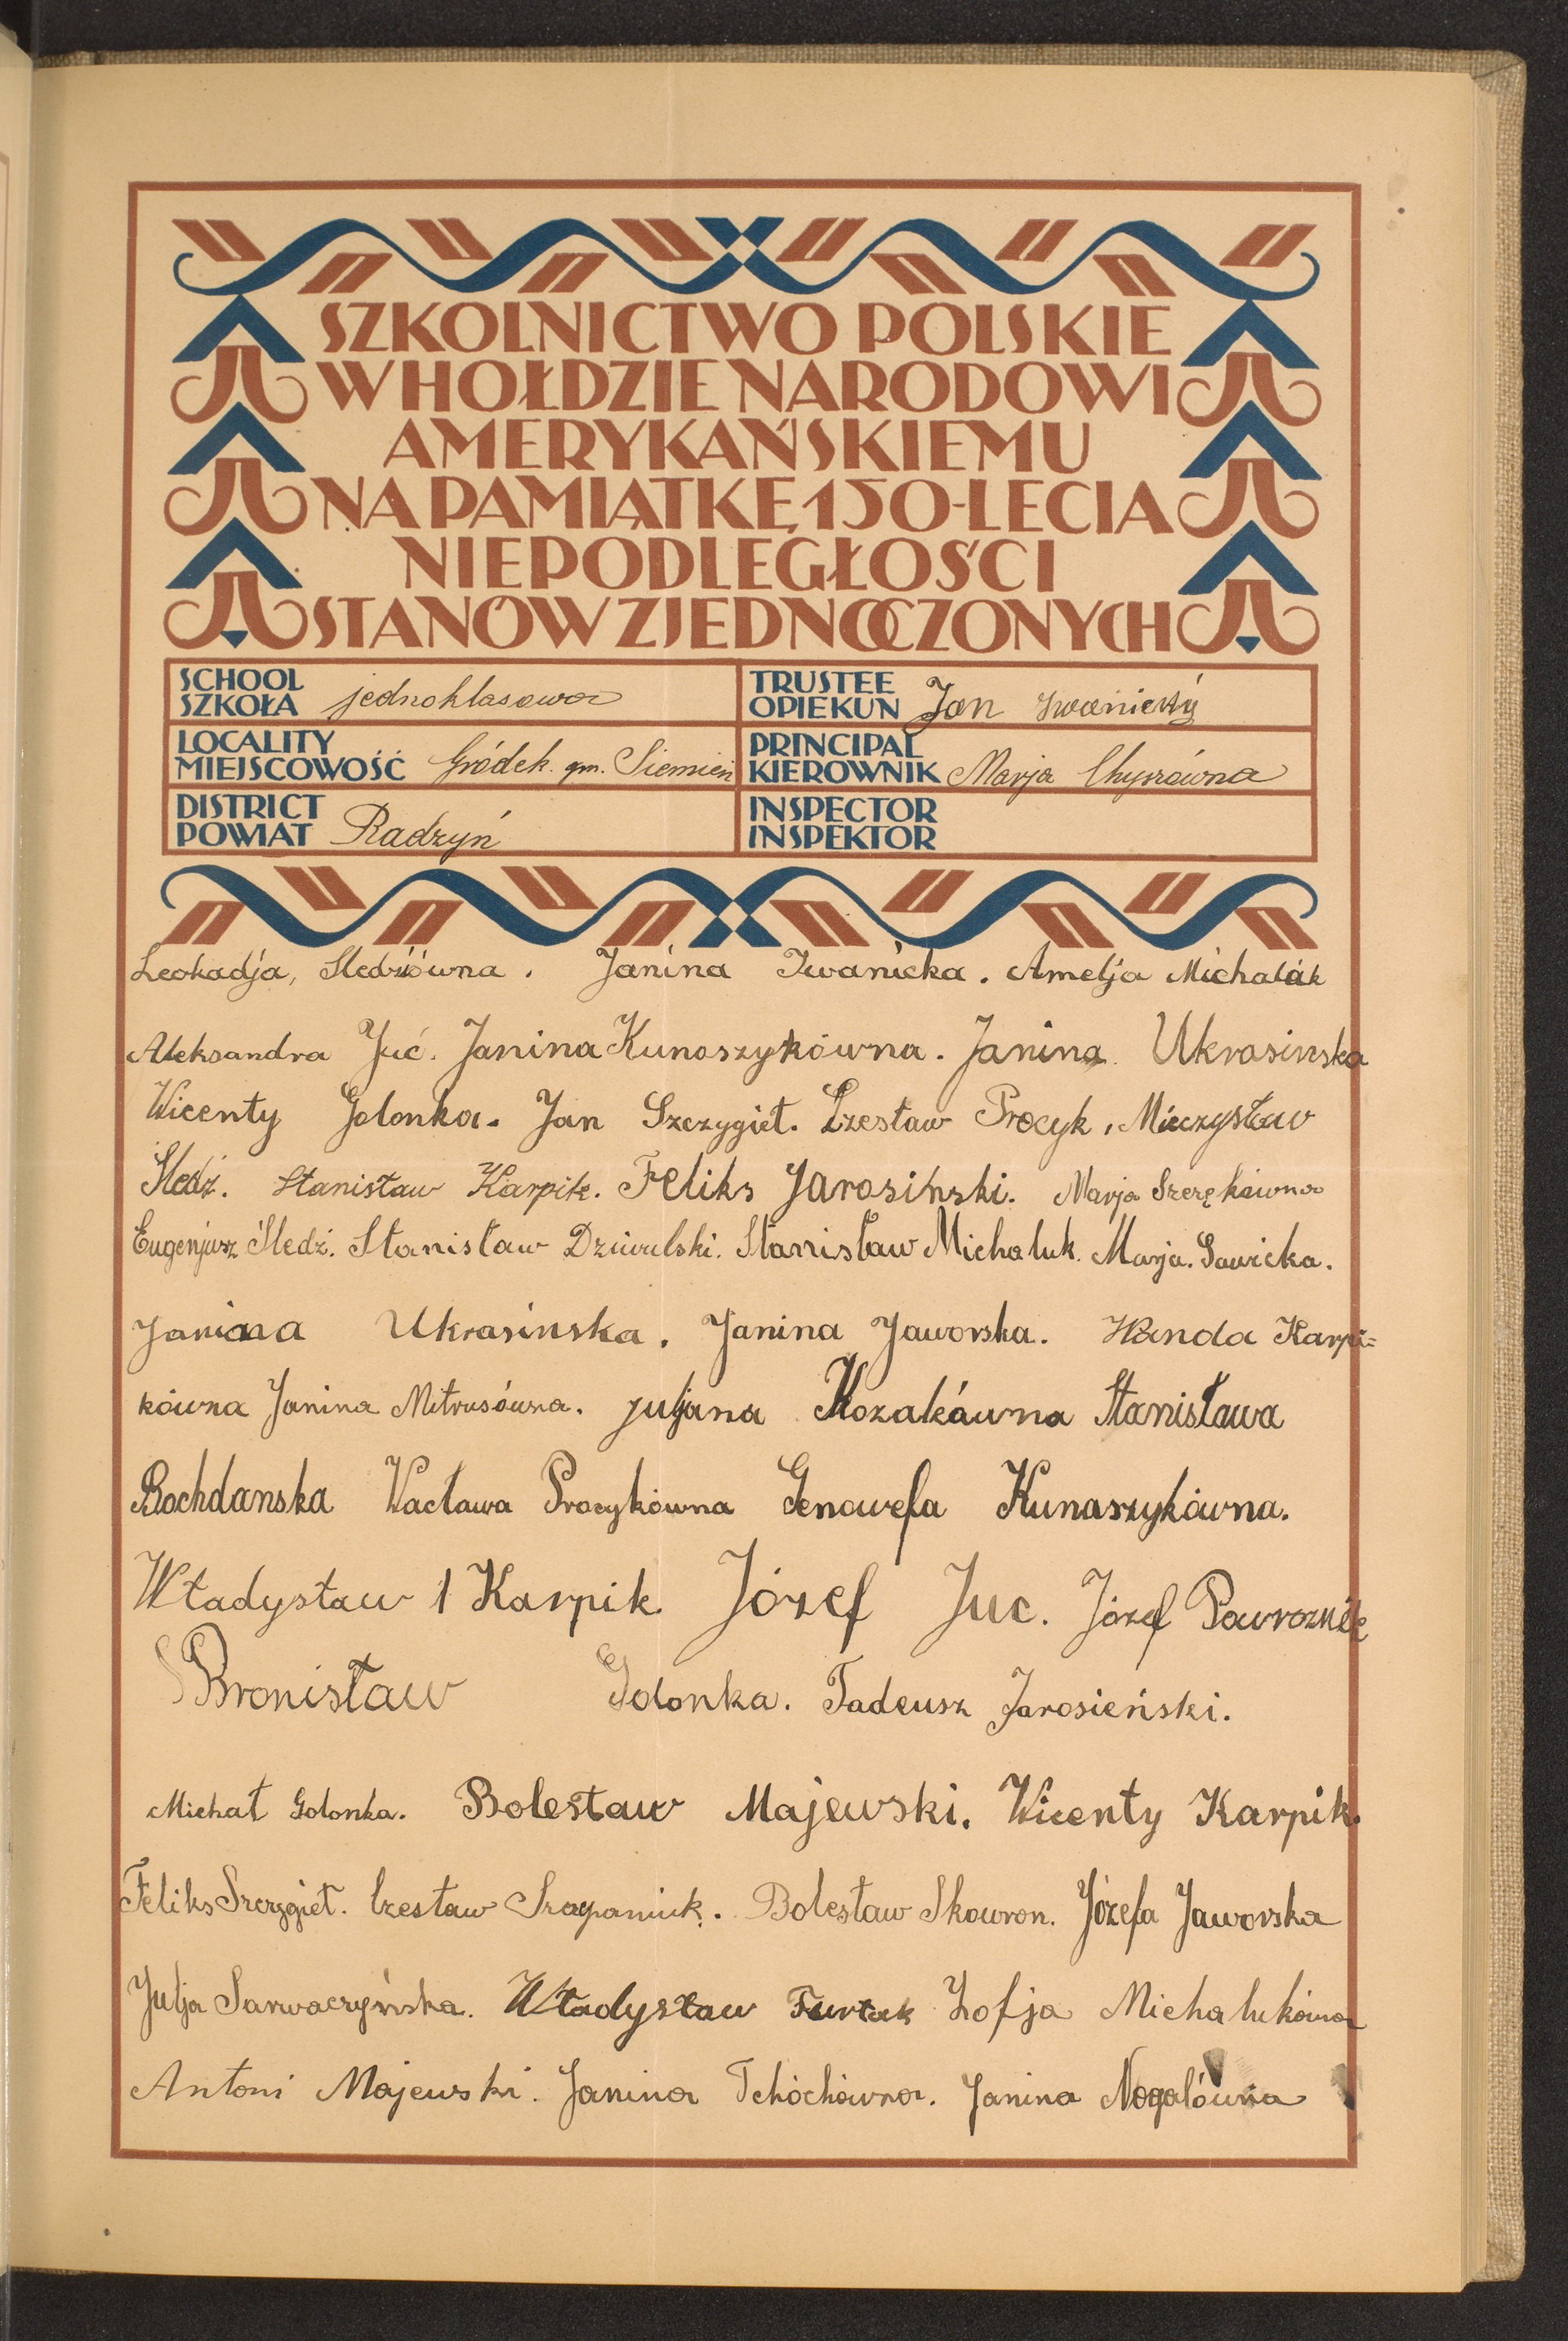 SZKOLNICTWO POLSKIE
W HOŁDZIE NARODOWI
AMERYKAŃSKIEMU
NA PAMIĄTKĘ 150-LECIA
NIEPODLEGŁOŚCI
STANÓW ZJEDNOCZONYCH
SCHOOL
SZKOŁA jednoklasowa
TRUSTEE
OPIEKUN Jan Iwanicki
LOCALITY
MIEJSCOWOŚĆ Gródek gm. Siemień
PRINCIPAL
KIEROWNIK Marja Chyżówna
DISTRICT
POWIAT Radzyń
INSPECTOR
INSPEKTOR
Leokadja, Śledziówna. Janina Iwanicka. Amelja Michalak
Aleksandra Juć. Janina Kunaszykówna. Janina Ukrasinska
Wicenty Golonka. Jan Szczygieł. Czesław Procyk. Mieczysław
Śledź. Stanisław Karpik. Feliks Jarosiński. Marja Szerękówna
Eugenjusz Śledź. Stanisław Dziwulski. Stanisław Michaluk. Marja. Sawicka.
Janina Ukrasinska. Janina Jaworska. Wanda Karpi=
kówna Janina Mitrusówna. Juljana Kozakówna Stanisława
Bochdanska Wacława Procykówna Genowefa Kunaszykówna.
Władysław 1 Karpik. Józef Juc. Józef Powroznik
Bronisław Golonka. Tadeusz Jarosieński.
Michał Golonka. Bolesław Majewski. Wicenty Karpik.
Feliks Szczygieł. Czesław Szczpaniuk. Bolesław Skowron. Józefa Jaworska
Julja Sarwaczyńska. Władysław Furtak Zofja Michalukówna
Antoni Majewski. Janina Tchóchówna. Janina Nogalówna